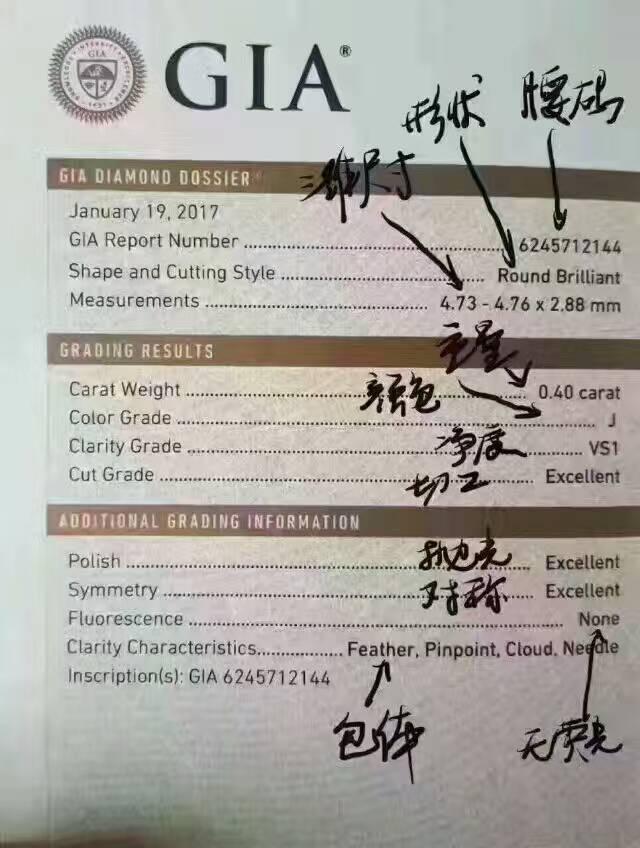 GIA®
形状 腰码
GIA DIAMOND DOSSIER®
三维尺寸
January 19, 2017
GIA Report Number 6245712144
Shape and Cutting Style Round Brilliant
Measurements 4.73 - 4.76 x 2.88 mm
GRADING RESULTS
重量
Carat Weight 0.40 carat
颜色
Color Grade J
Clarity Grade 净度 VS1
Cut Grade 切工 Excellent
ADDITIONAL GRADING INFORMATION
Polish 抛光 Excellent
Symmetry 对称 Excellent
Fluorescence None
Clarity Characteristics Feather, Pinpoint, Cloud, Needle
Inscription(s): GIA 6245712144
包体 无荧光